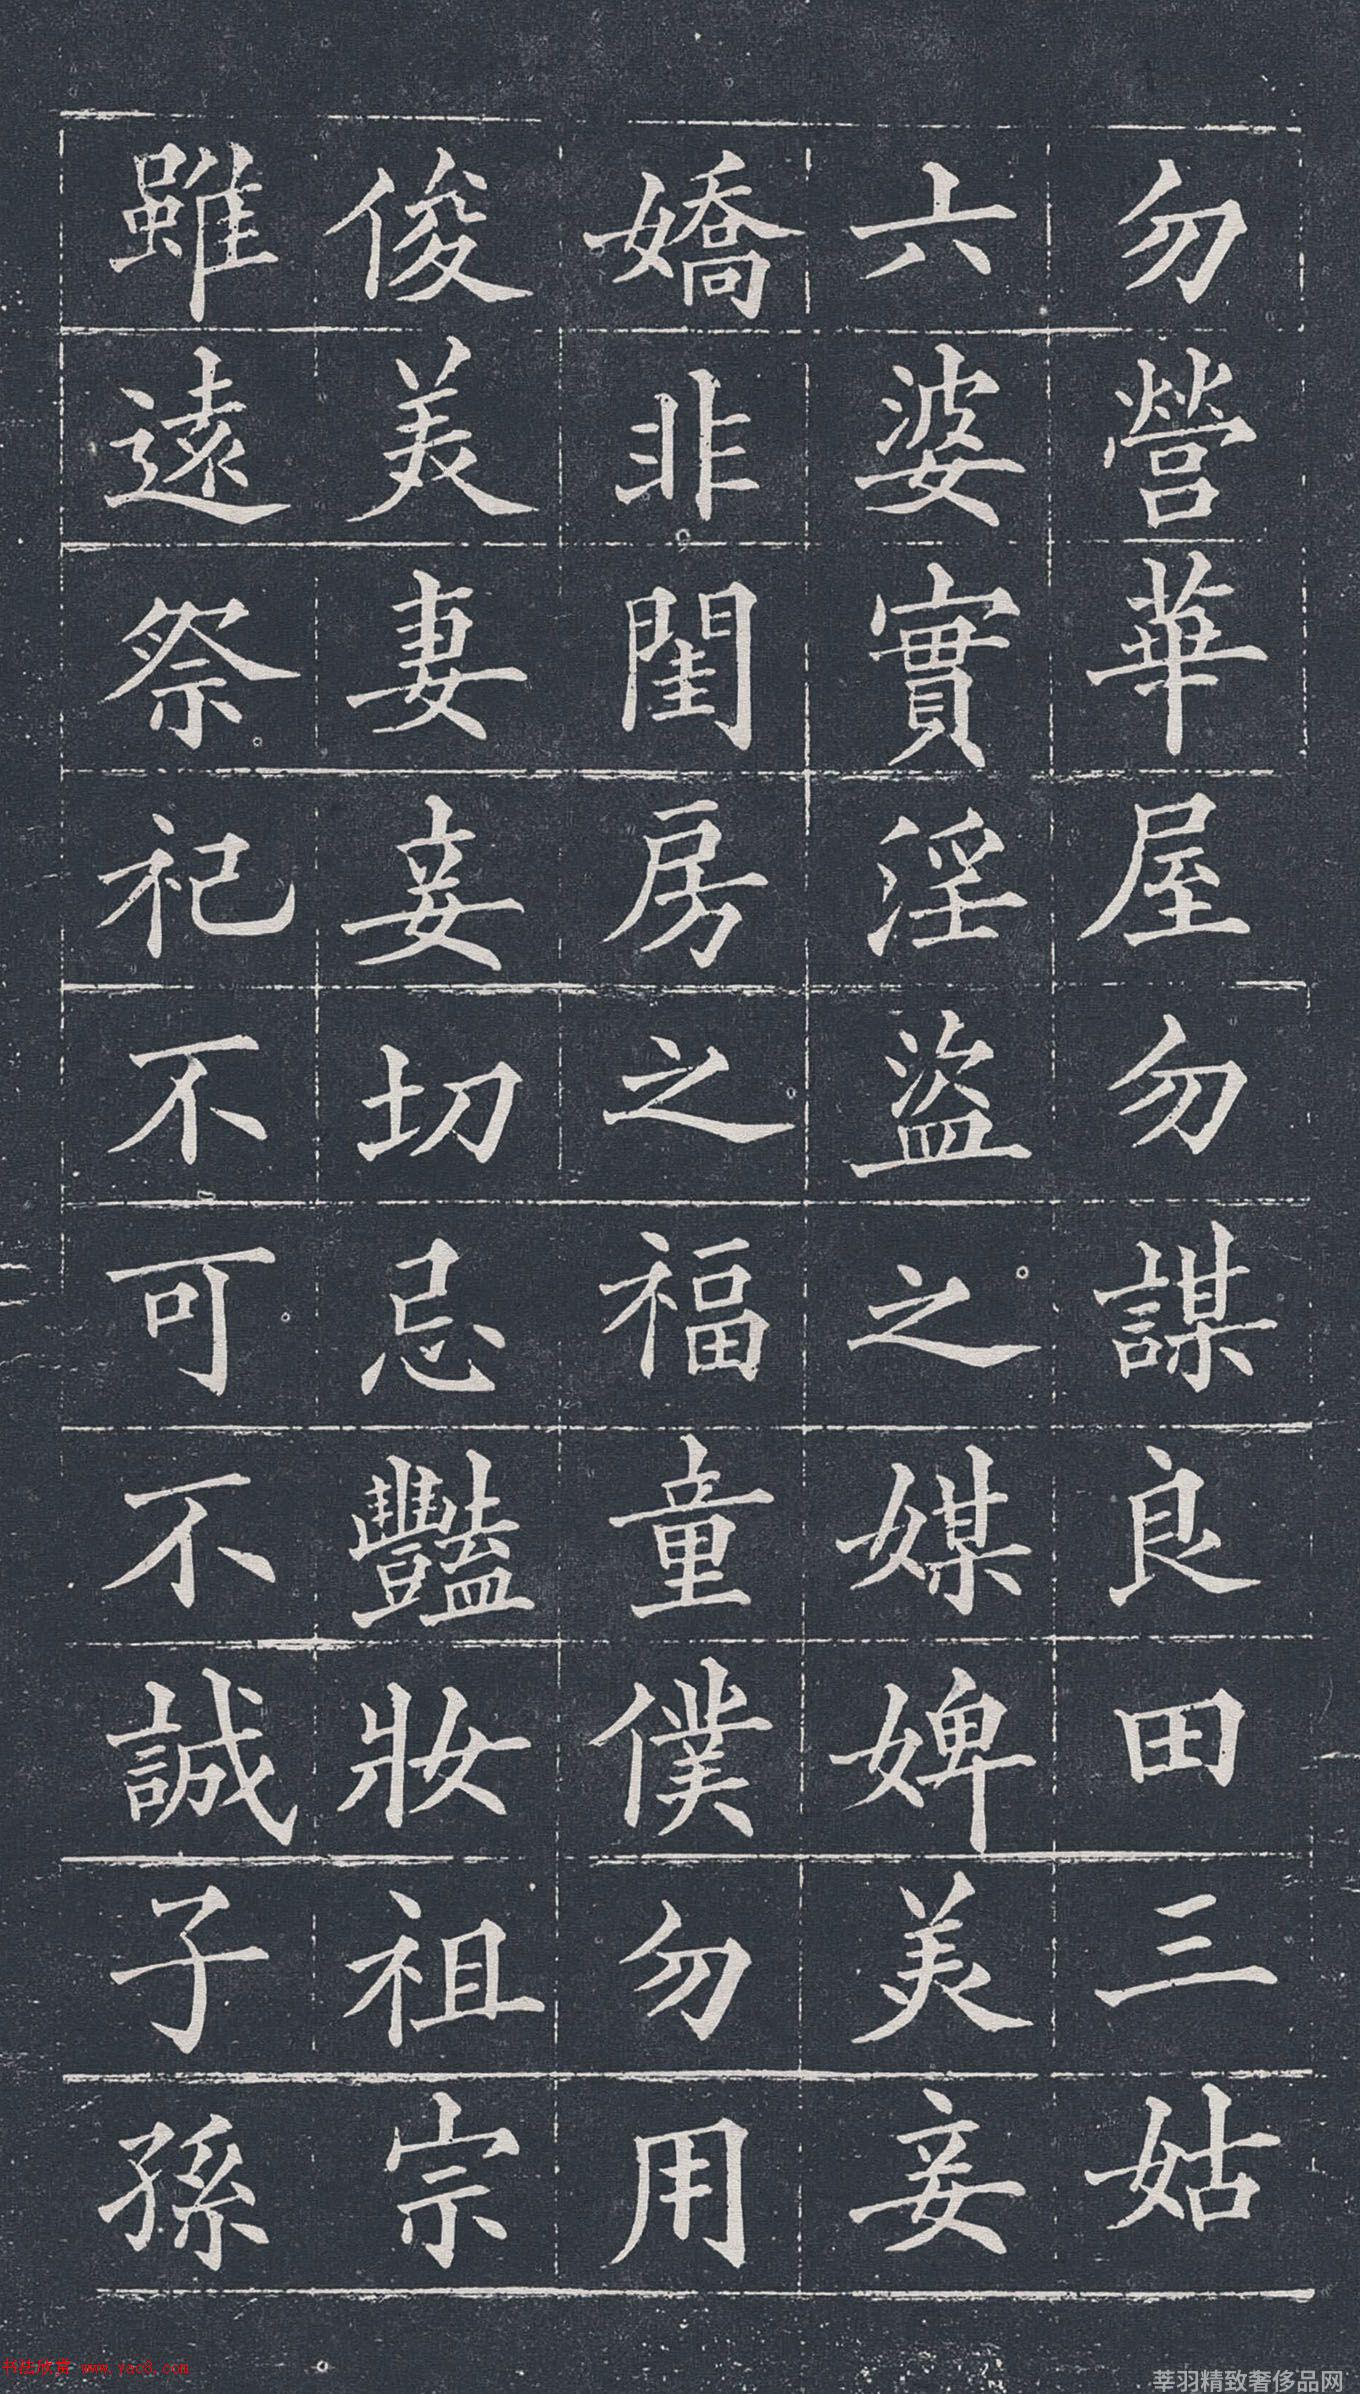 勿營華屋勿謀良田三姑
六婆實淫盜之媒婢美妾
嬌非閨房之福童僕勿用
俊美妻妾切忌豔妝祖宗
雖遠祭祀不可不誠子孫
书法欣赏 www.yac8.com
莘羽精致奢侈品网